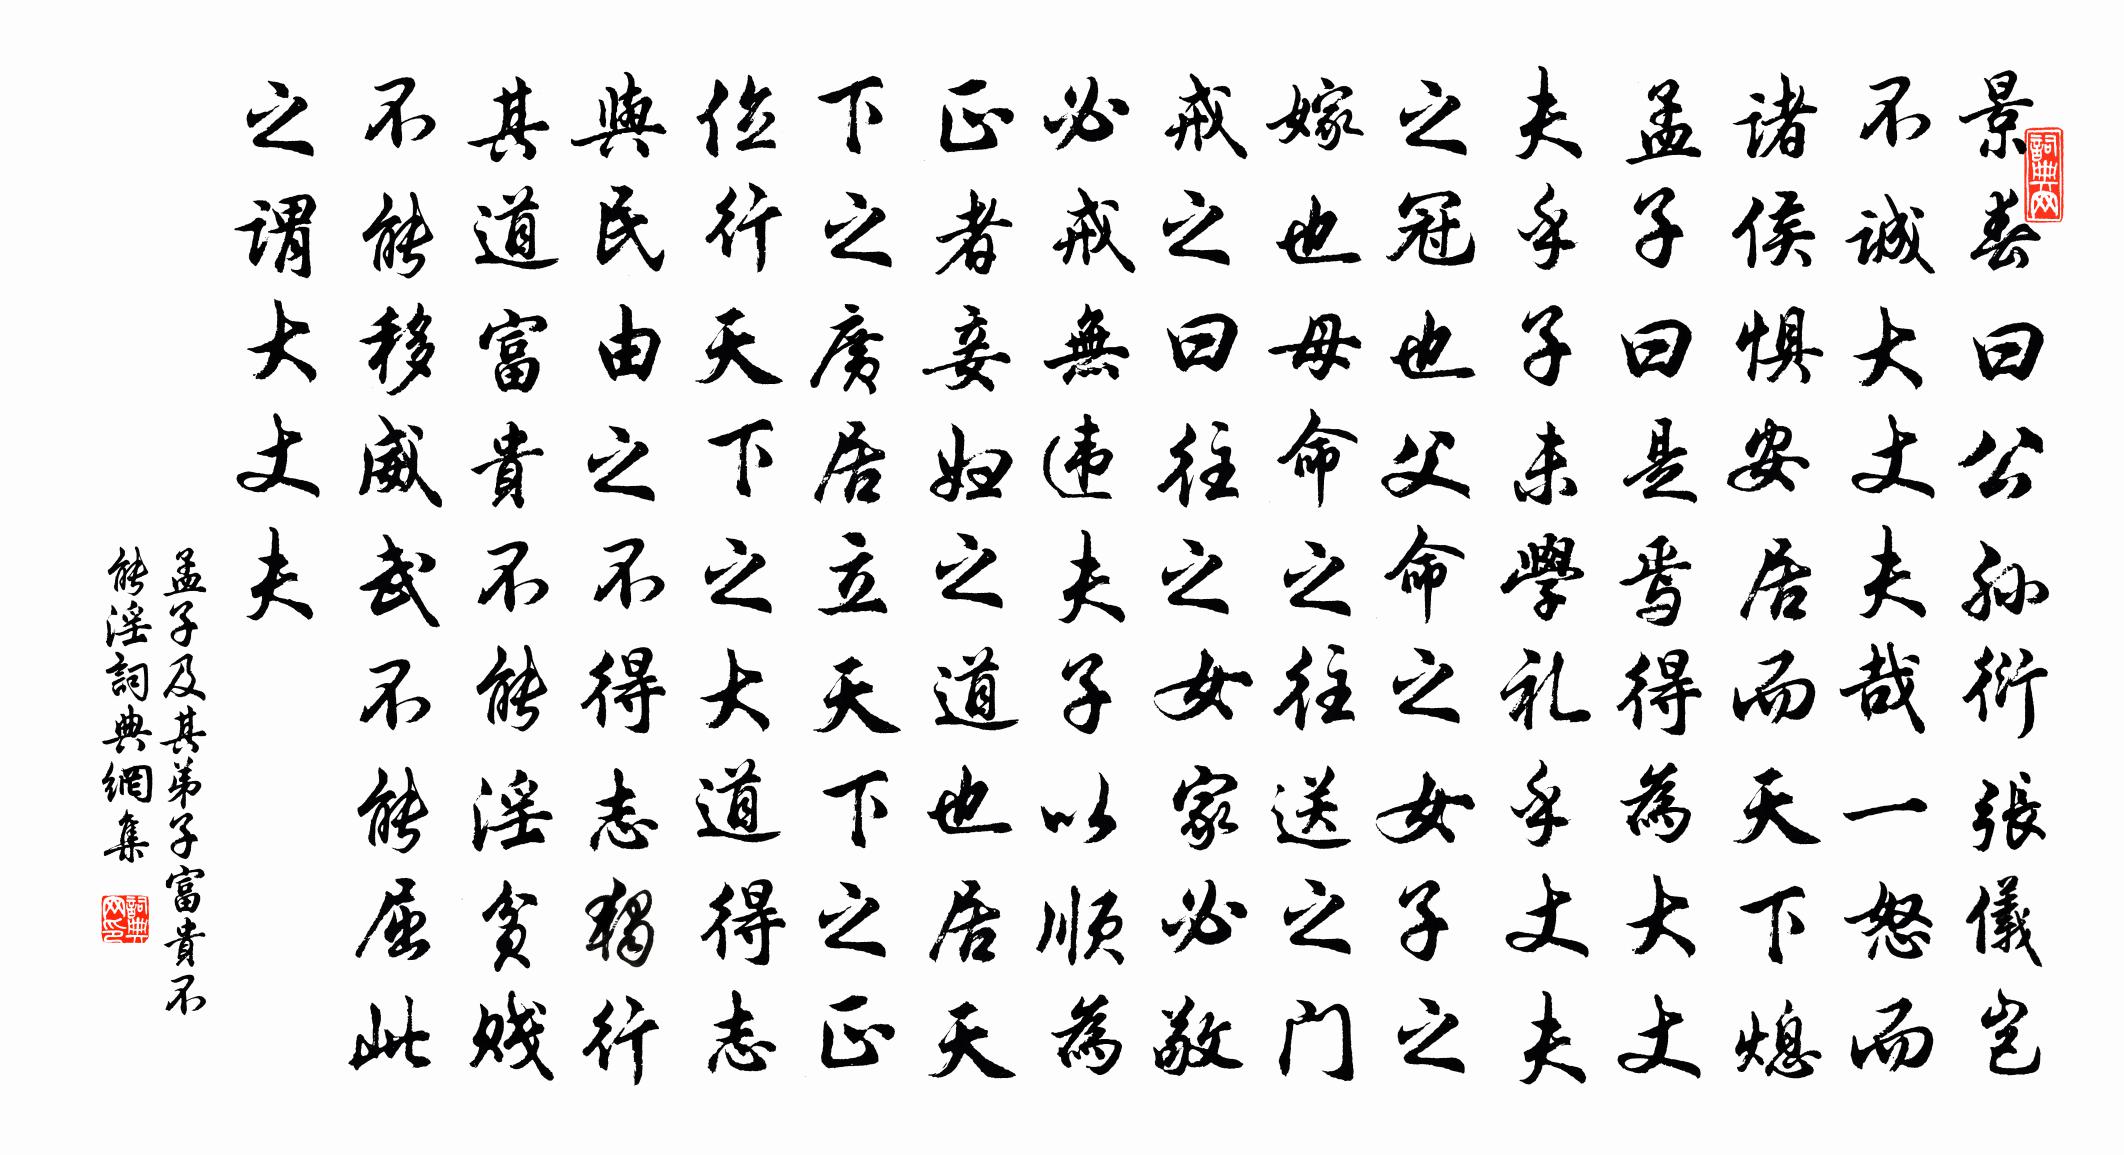 景春曰公孙衍張儀豈
不诚大丈夫哉一怒而
诸侯惧安居而天下熄
孟子曰是焉得為大丈
夫乎子未學礼乎丈夫
之冠也父命之女子之
嫁也母命之往送之门
戒之曰往之女家必敬
必戒無违夫子以顺為
正者妾妇之道也居天
下之廣居立天下之正
位行天下之大道得志
與民由之不得志獨行
其道富貴不能淫贫贱
不能移威武不能屈此
之谓大丈夫
孟子及其弟子富貴不
能淫詞典網集
詞典网
詞典网印